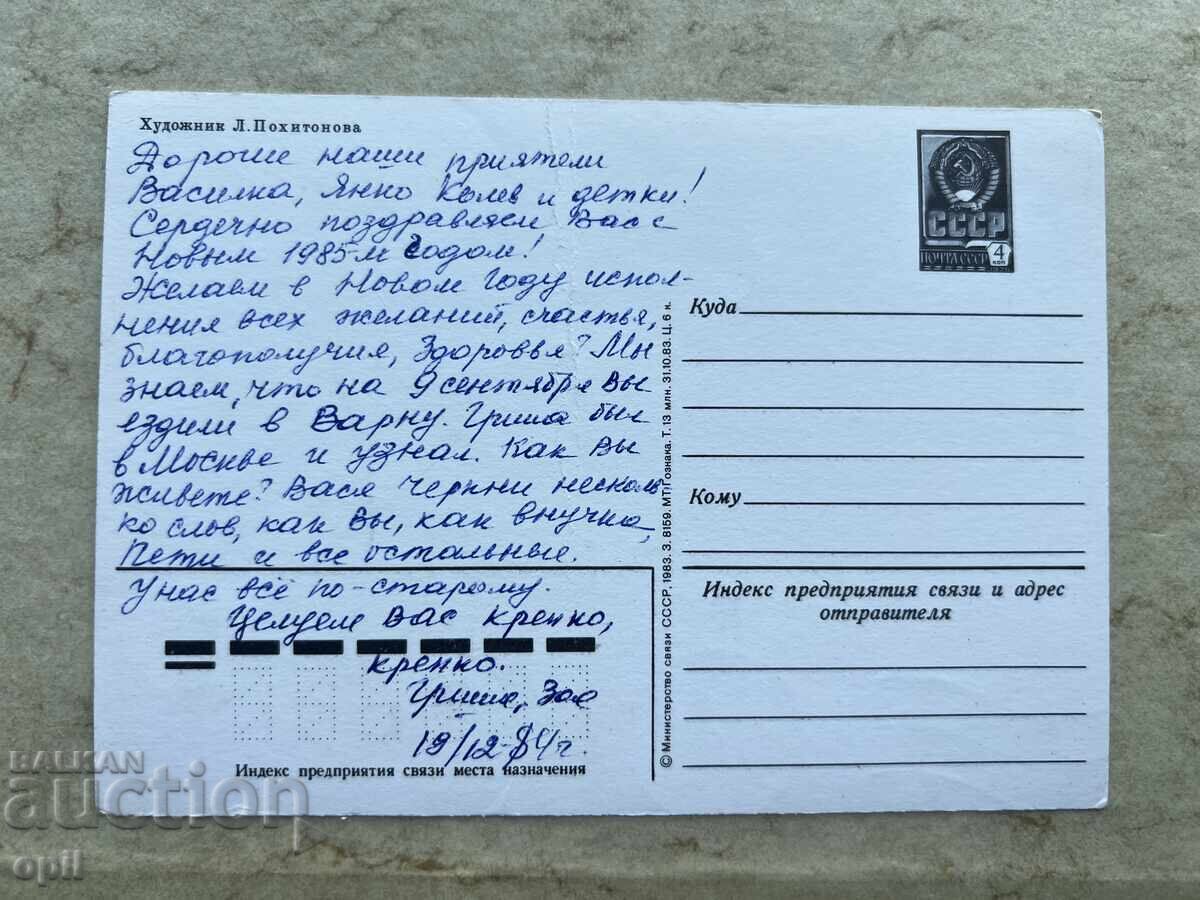 Художник Л.Похитонова
Дорогие наши приятели
Василка, Янко Колев и детки!
Сердечно поздравляем Вас с
Новым 1985-м годом!
Желаем в Новом году испол-
нения всех желаний, счастья,
благополучия, здоровья! Мы
знаем, что на 9 сентября вы
ездили в Варну. Гриша был
в Москве и узнал. Как Вы
живете? Вася черкни несколь
ко слов, как Вы, как внучка,
Пети и все остальные.
У нас всё по-старому.
Целуем Вас крепко,
крепко.
Гриша, Зоя
19/12 84 г.
Индекс предприятия связи места назначения
© Министерство связи СССР, 1983. З. 8159. МТГ Гознака. Т. 13 млн. 31.10.83. Ц. 6 к.
СССР
ПОЧТА СССР
4
коп
Куда
Кому
Индекс предприятия связи и адрес
отправителя
BALKAN
auction
opil